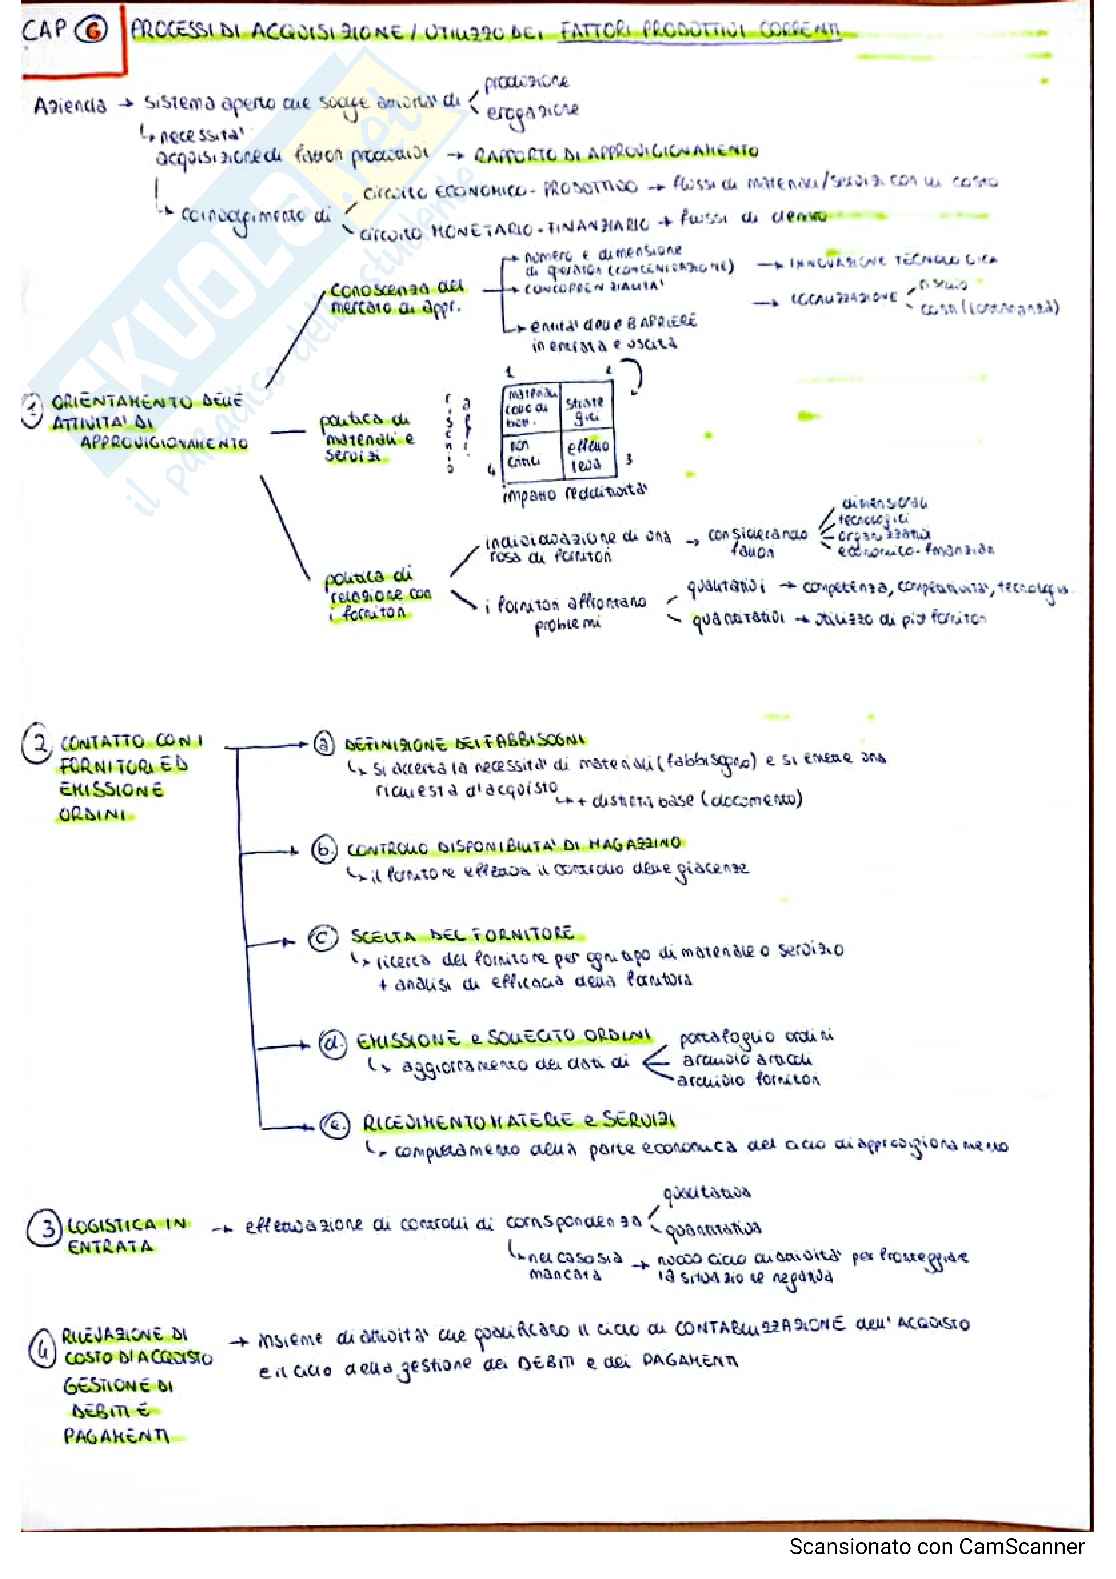 CAP 6 PROCESSI DI ACQUISIZIONE / UTILIZZO DEI FATTORI PRODUTTIVI CORRENTI
Azienda → sistema aperto che svolge attività di
produzione
erogazione
necessità
acquisizione di fattori produttivi → RAPPORTO DI APPROVIGIONAMENTO
coinvolgimento di
circuito ECONOMICO-PRODUTTIVO → flussi di materiali/servizi con un costo
circuito MONETARIO-FINANZIARIO → flussi di denaro
1 ORIENTAMENTO DELLE
ATTIVITA' DI
APPROVIGIONAMENTO
conoscenza del
mercato di appr.
numero e dimensione
di operatori (CONCENTRAZIONE) → INNOVAZIONE TECNOLOGICA
CONCORRENZIALITA'
→ LOCALIZZAZIONE
rischio
costi (lontananza)
entità delle BARRIERE
in entrata e uscita
politica di
materiali e
servizi
1 2
materiali
collo di
bott.
strate
gici
non
critici
effetto
leva
4 3
impatto redditività
politica di
relazione con
i fornitori
individuazione di una
rosa di fornitori
→ considerando
fattori
dimensionali
tecnologici
organizzativi
economico-finanziari
i fornitori affrontano
problemi
qualitativi → competenza, competitività, tecnologia
quantitativi → utilizzo di più fornitori
2 CONTATTO CON I
FORNITORI ED
EMISSIONE
ORDINI
a DEFINIZIONE DEI FABBISOGNI
si accerta la necessità di materiali (fabbisogno) e si emette una
richiesta d'acquisto
+ distinta base (documento)
b. CONTROLLO DISPONIBILITA' DI MAGAZZINO
il fornitore effettua il controllo delle giacenze
c SCELTA DEL FORNITORE
ricerca del fornitore per ogni tipo di materiale o servizio
+ analisi di efficacia della fornitura
d. EMISSIONE e SOLLECITO ORDINI
aggiornamento dei dati di
portafoglio ordini
archivio articoli
archivio fornitori
e. RICEVIMENTO MATERIE e SERVIZI
completamento della parte economica del ciclo di approvigionamento
3 LOGISTICA IN
ENTRATA
→ effettuazione di controlli di corrispondenza
qualitativa
quantitativa
nel caso sia
mancata
→ nuovo ciclo di attività per fronteggiare
la situazione negativa
4 RILEVAZIONE DI
COSTO D'ACQUISTO
GESTIONE DI
DEBITI E
PAGAMENTI
→ insieme di attività che qualificano il ciclo di CONTABILIZZAZIONE dell'ACQUISTO
e il ciclo della gestione dei DEBITI e dei PAGAMENTI
SKUOLA.net
il paradiso dello studente
Scansionato con CamScanner